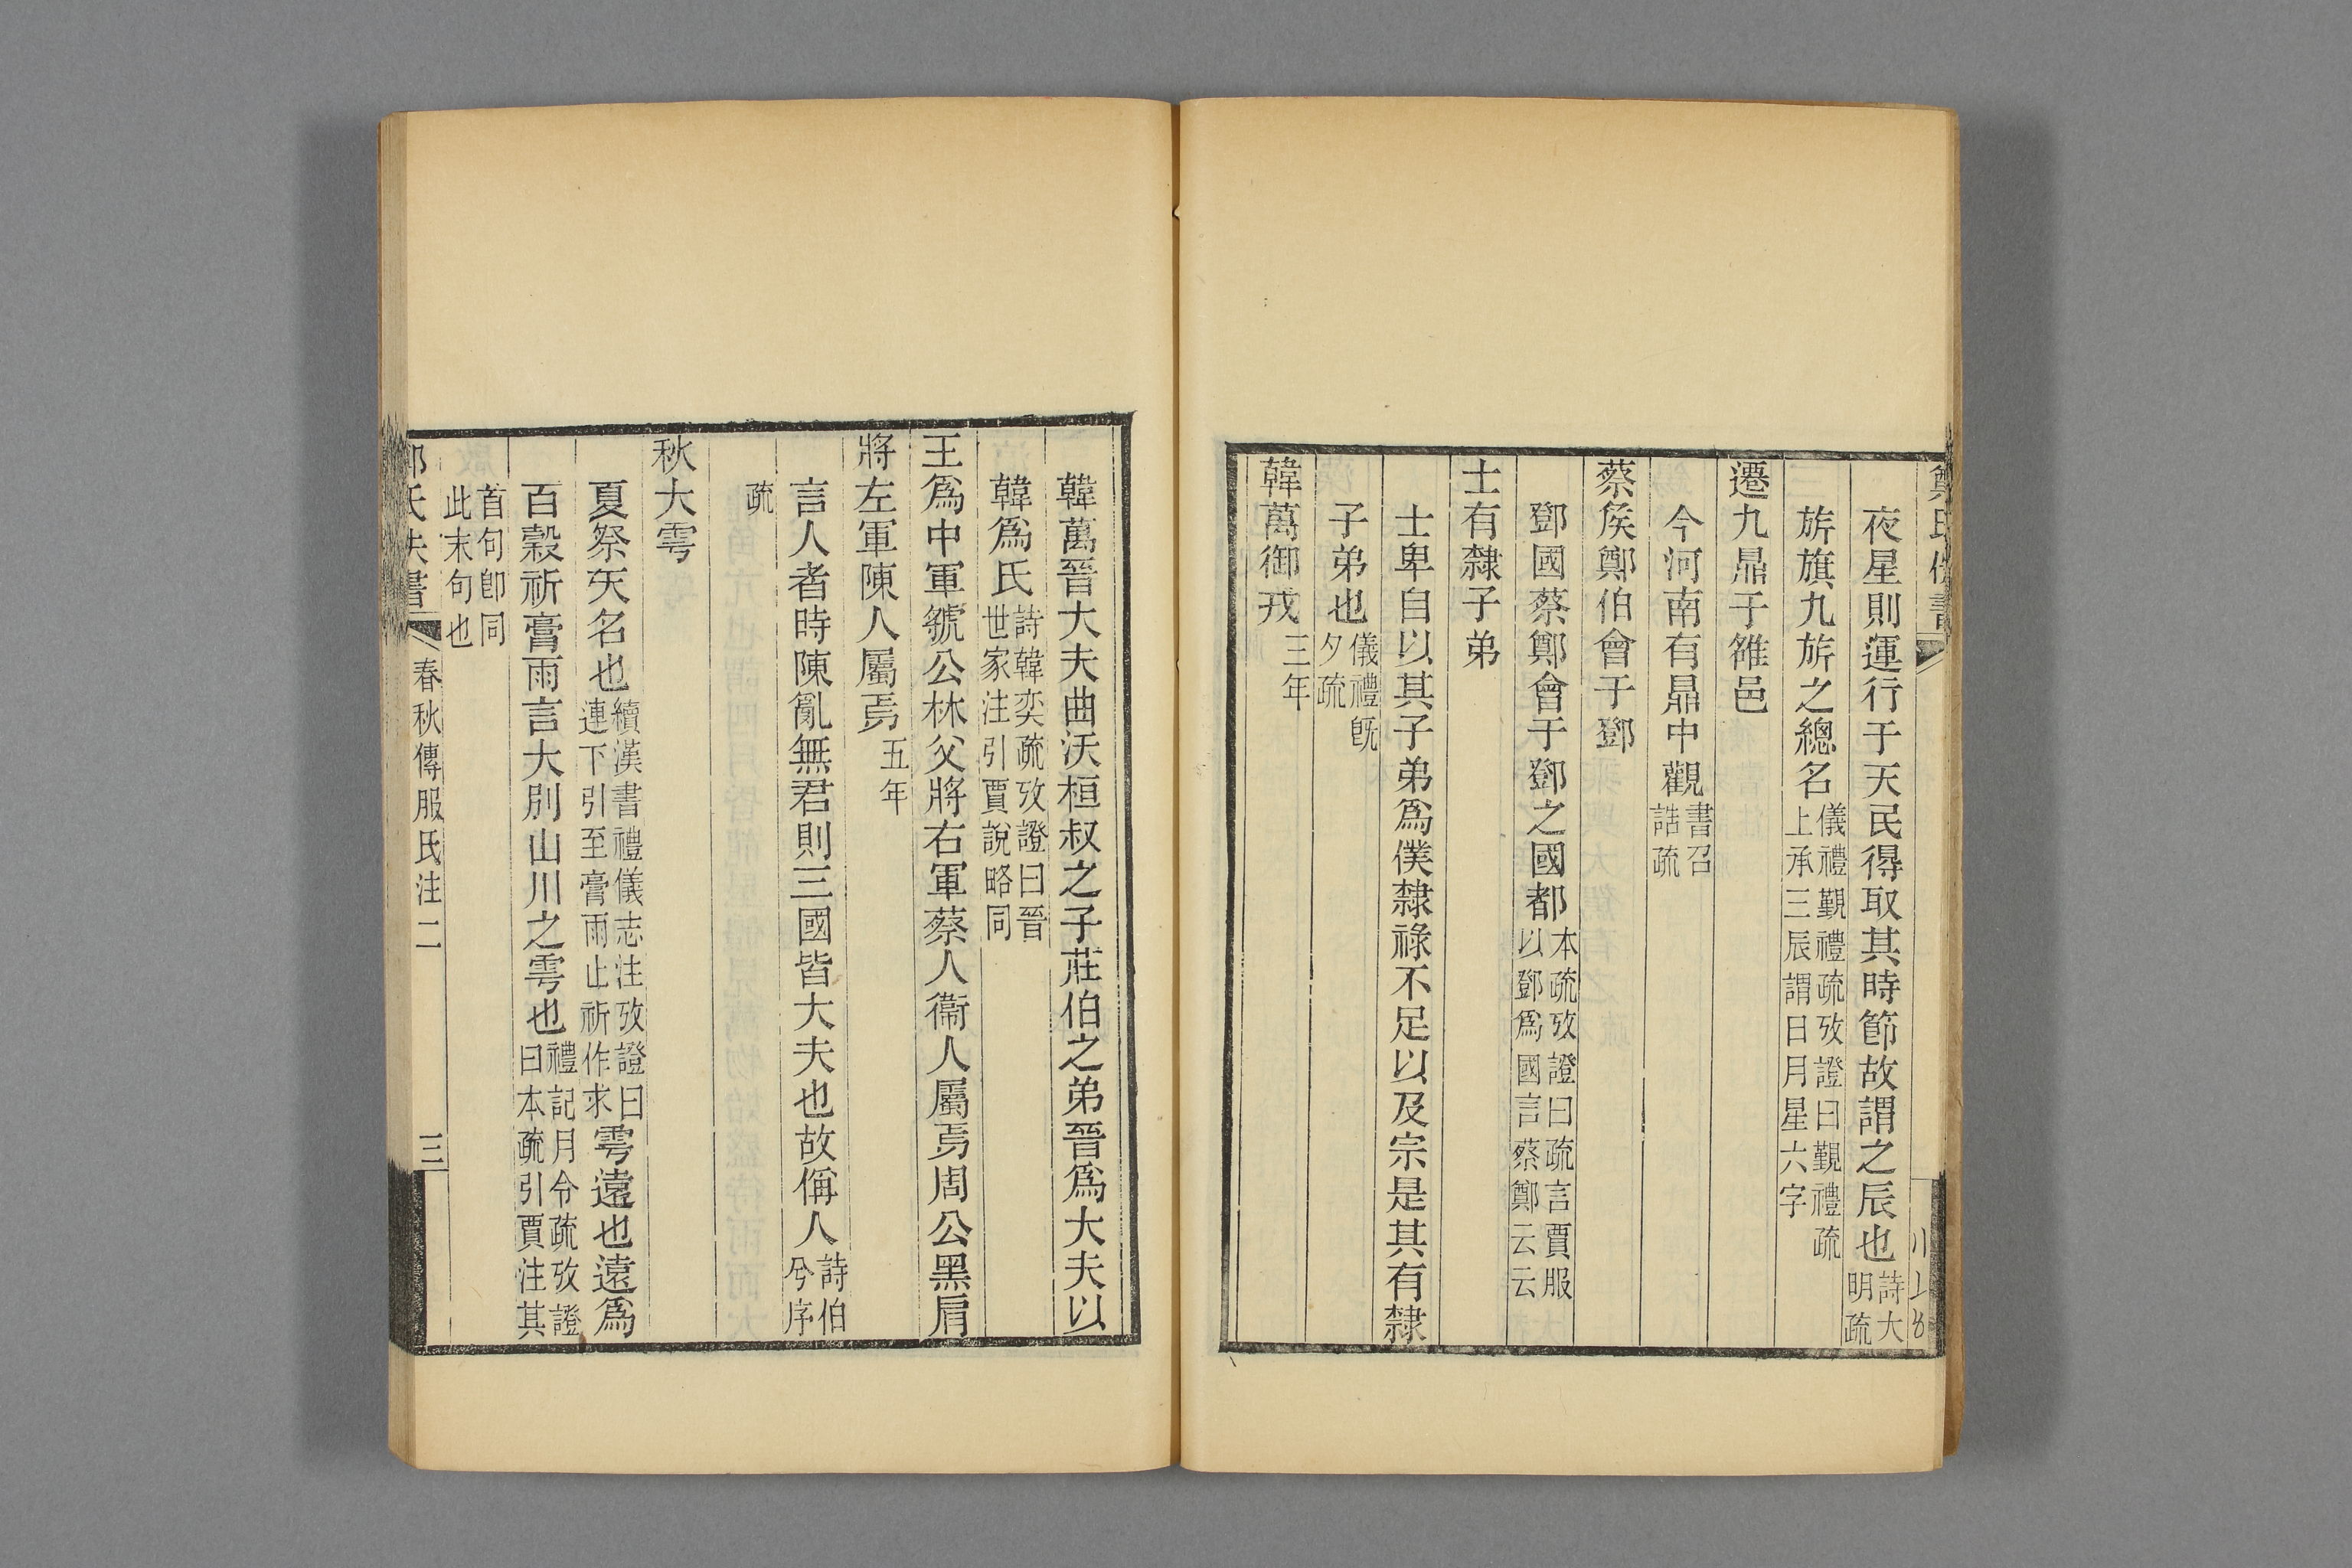 夜星則運行于天民得取其時節故謂之辰也詩大明疏
旂旗九旂之總名儀禮覲禮疏攷證曰覲禮疏上承三辰謂日月星六字
遷九鼎于雒邑
今河南有鼎中觀書召誥疏
蔡矦鄭伯會于鄧
鄧國蔡鄭會于鄧之國都本疏攷證曰疏言賈服以鄧爲國言蔡鄭云云
士有隸子弟
士卑自以其子弟爲僕隸祿不足以及宗是其有隸
子弟也儀禮旣夕疏
韓萬御戎三年
韓萬晉大夫曲沃桓叔之子莊伯之弟晉爲大夫以
韓爲氏詩韓奕疏攷證曰晉世家注引賈說略同
王爲中軍虢公林父將右軍蔡人衞人屬焉周公黑肩
將左軍陳人屬焉五年
言人者時陳亂無君則三國皆大夫也故偁人詩伯兮序
疏
秋大雩
夏祭天名也續漢書禮儀志注攷證曰連下引至膏雨止祈作求雩遠也遠爲
百穀祈膏雨言大別山川之雩也禮記月令疏攷證曰本疏引賈注其
首句卽同此末句也
氏佚書 春秋傳服氏注二 三